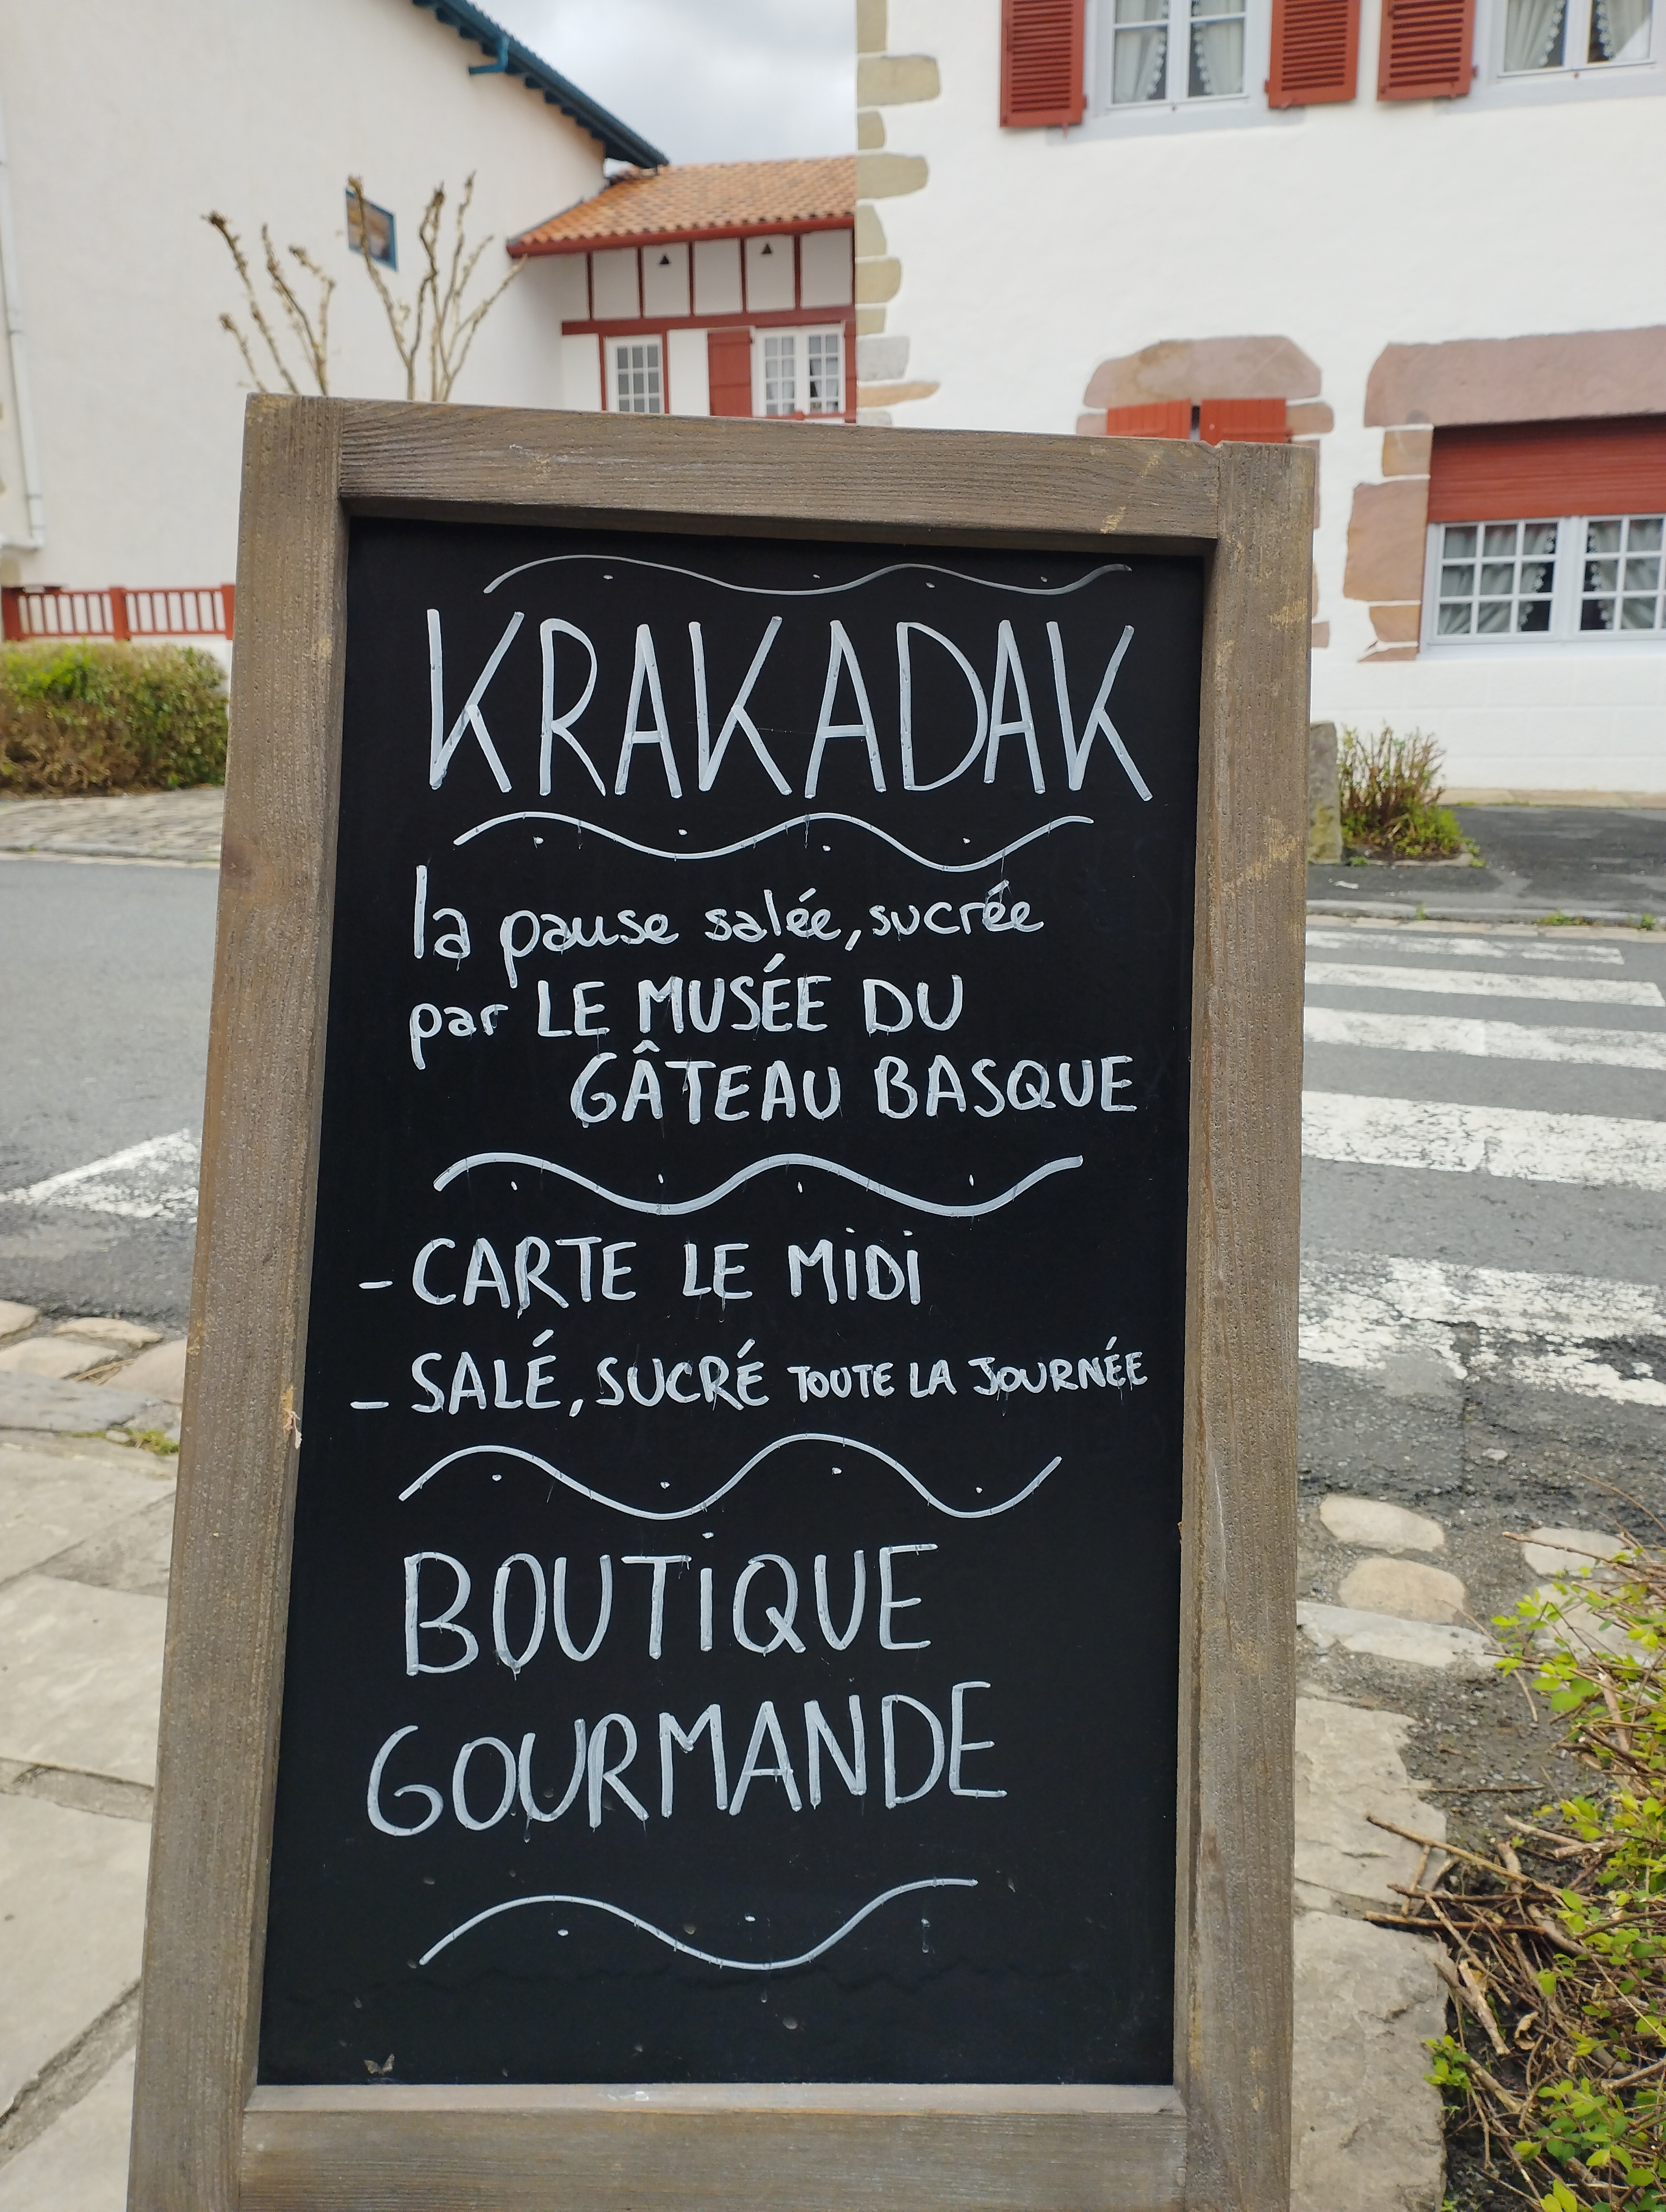 KRAKADAK
la pause salée, sucrée
par LE MUSÉE DU
GÂTEAU BASQUE
- CARTE LE MiDi
- SALÉ, SUCRÉ TOUTE LA JOURNÉE
BOUTiQUE
GOURMANDE